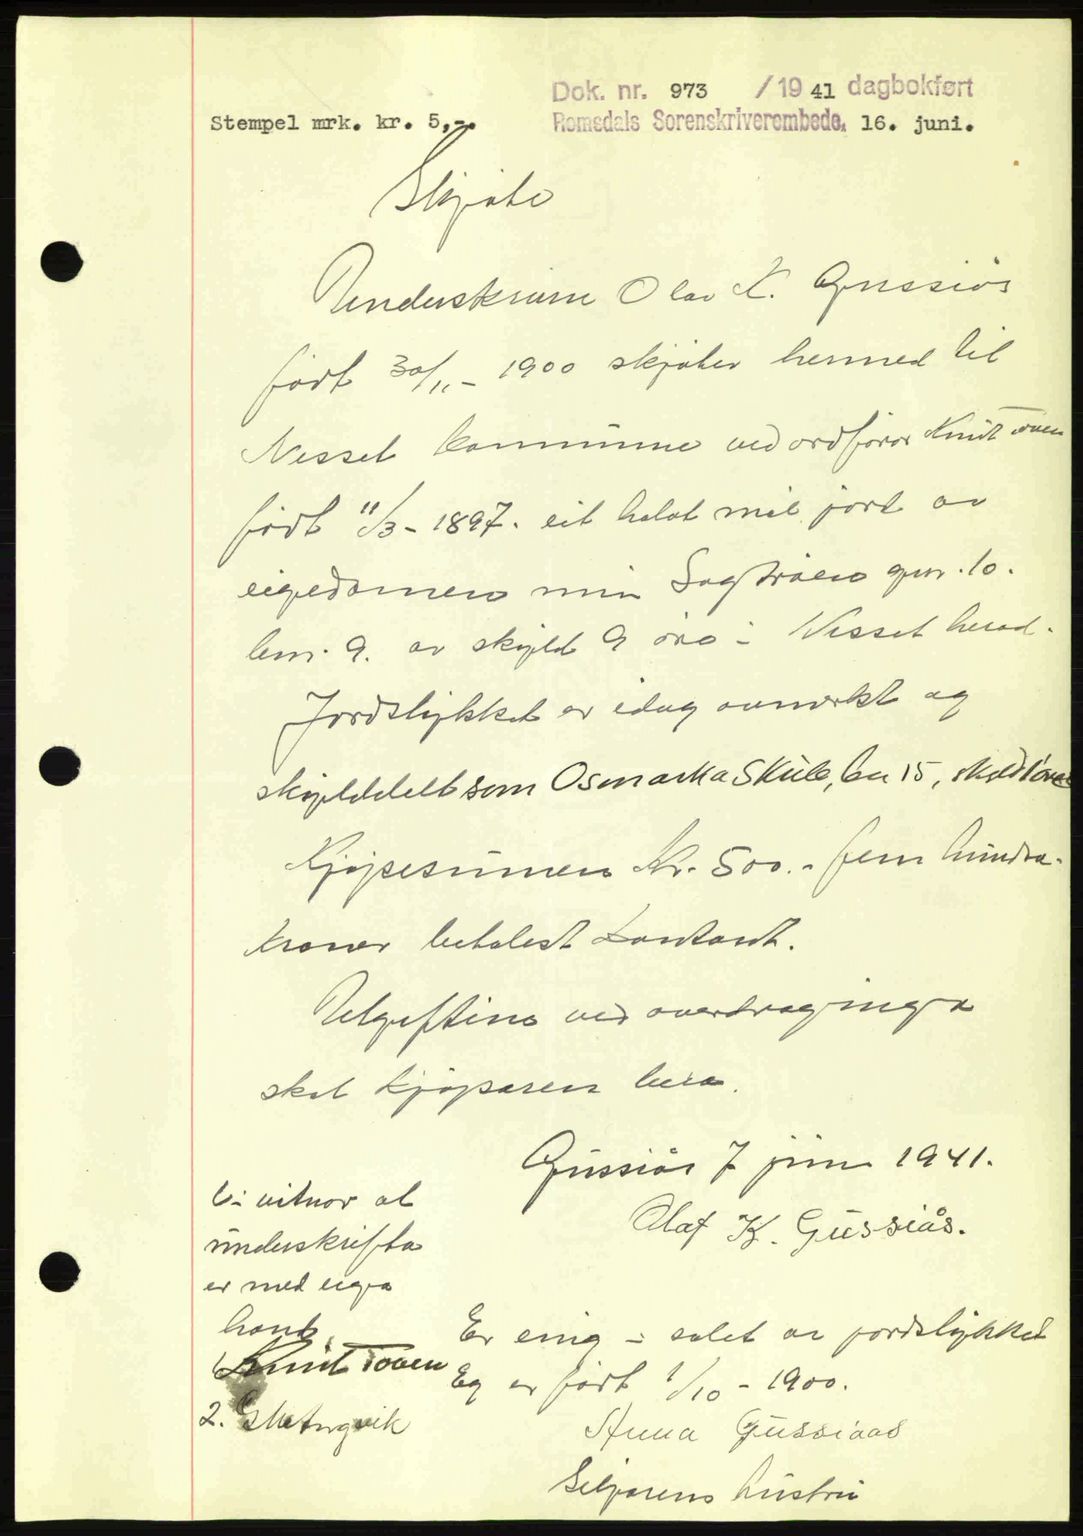 Dok. nr. 973 /1941 dagbokført
Stempel mrk. kr. 5,-. Romsdals Sorenskriverembede, 16. juni.
Skjøte
Underskrivne Olav K. Gussiås
født 30/11 - 1900 skjøter hermed til
Nesset kommune ved ordførar Knut Toven
født 11/3 - 1897. eit halvt mål jord av
eigedomen min Sagtrøen gnr. 10.
bnr. 9. av skyld 9 øre i Nesset herad.
Jordstykket er idag avmerkt og
skylddelt som Osmarka Skule, bn 15, skyld 1 øre
Kjøpesummen Kr. 500.- fem hundra-
kroner betalest kontant.
Utgiftine ved overdraginga
skal kjøparen bera.
Gussiås 7 juni 1941.
Olaf K. Gussiås.
Vi vitnar at
underskrifta
er med eiga
hand.
1. Knut Toven
2.
Er enig i salet av jordstykket
Eg er født 1/10 - 1900.
Anna Gussiaas
Seljarens hustru